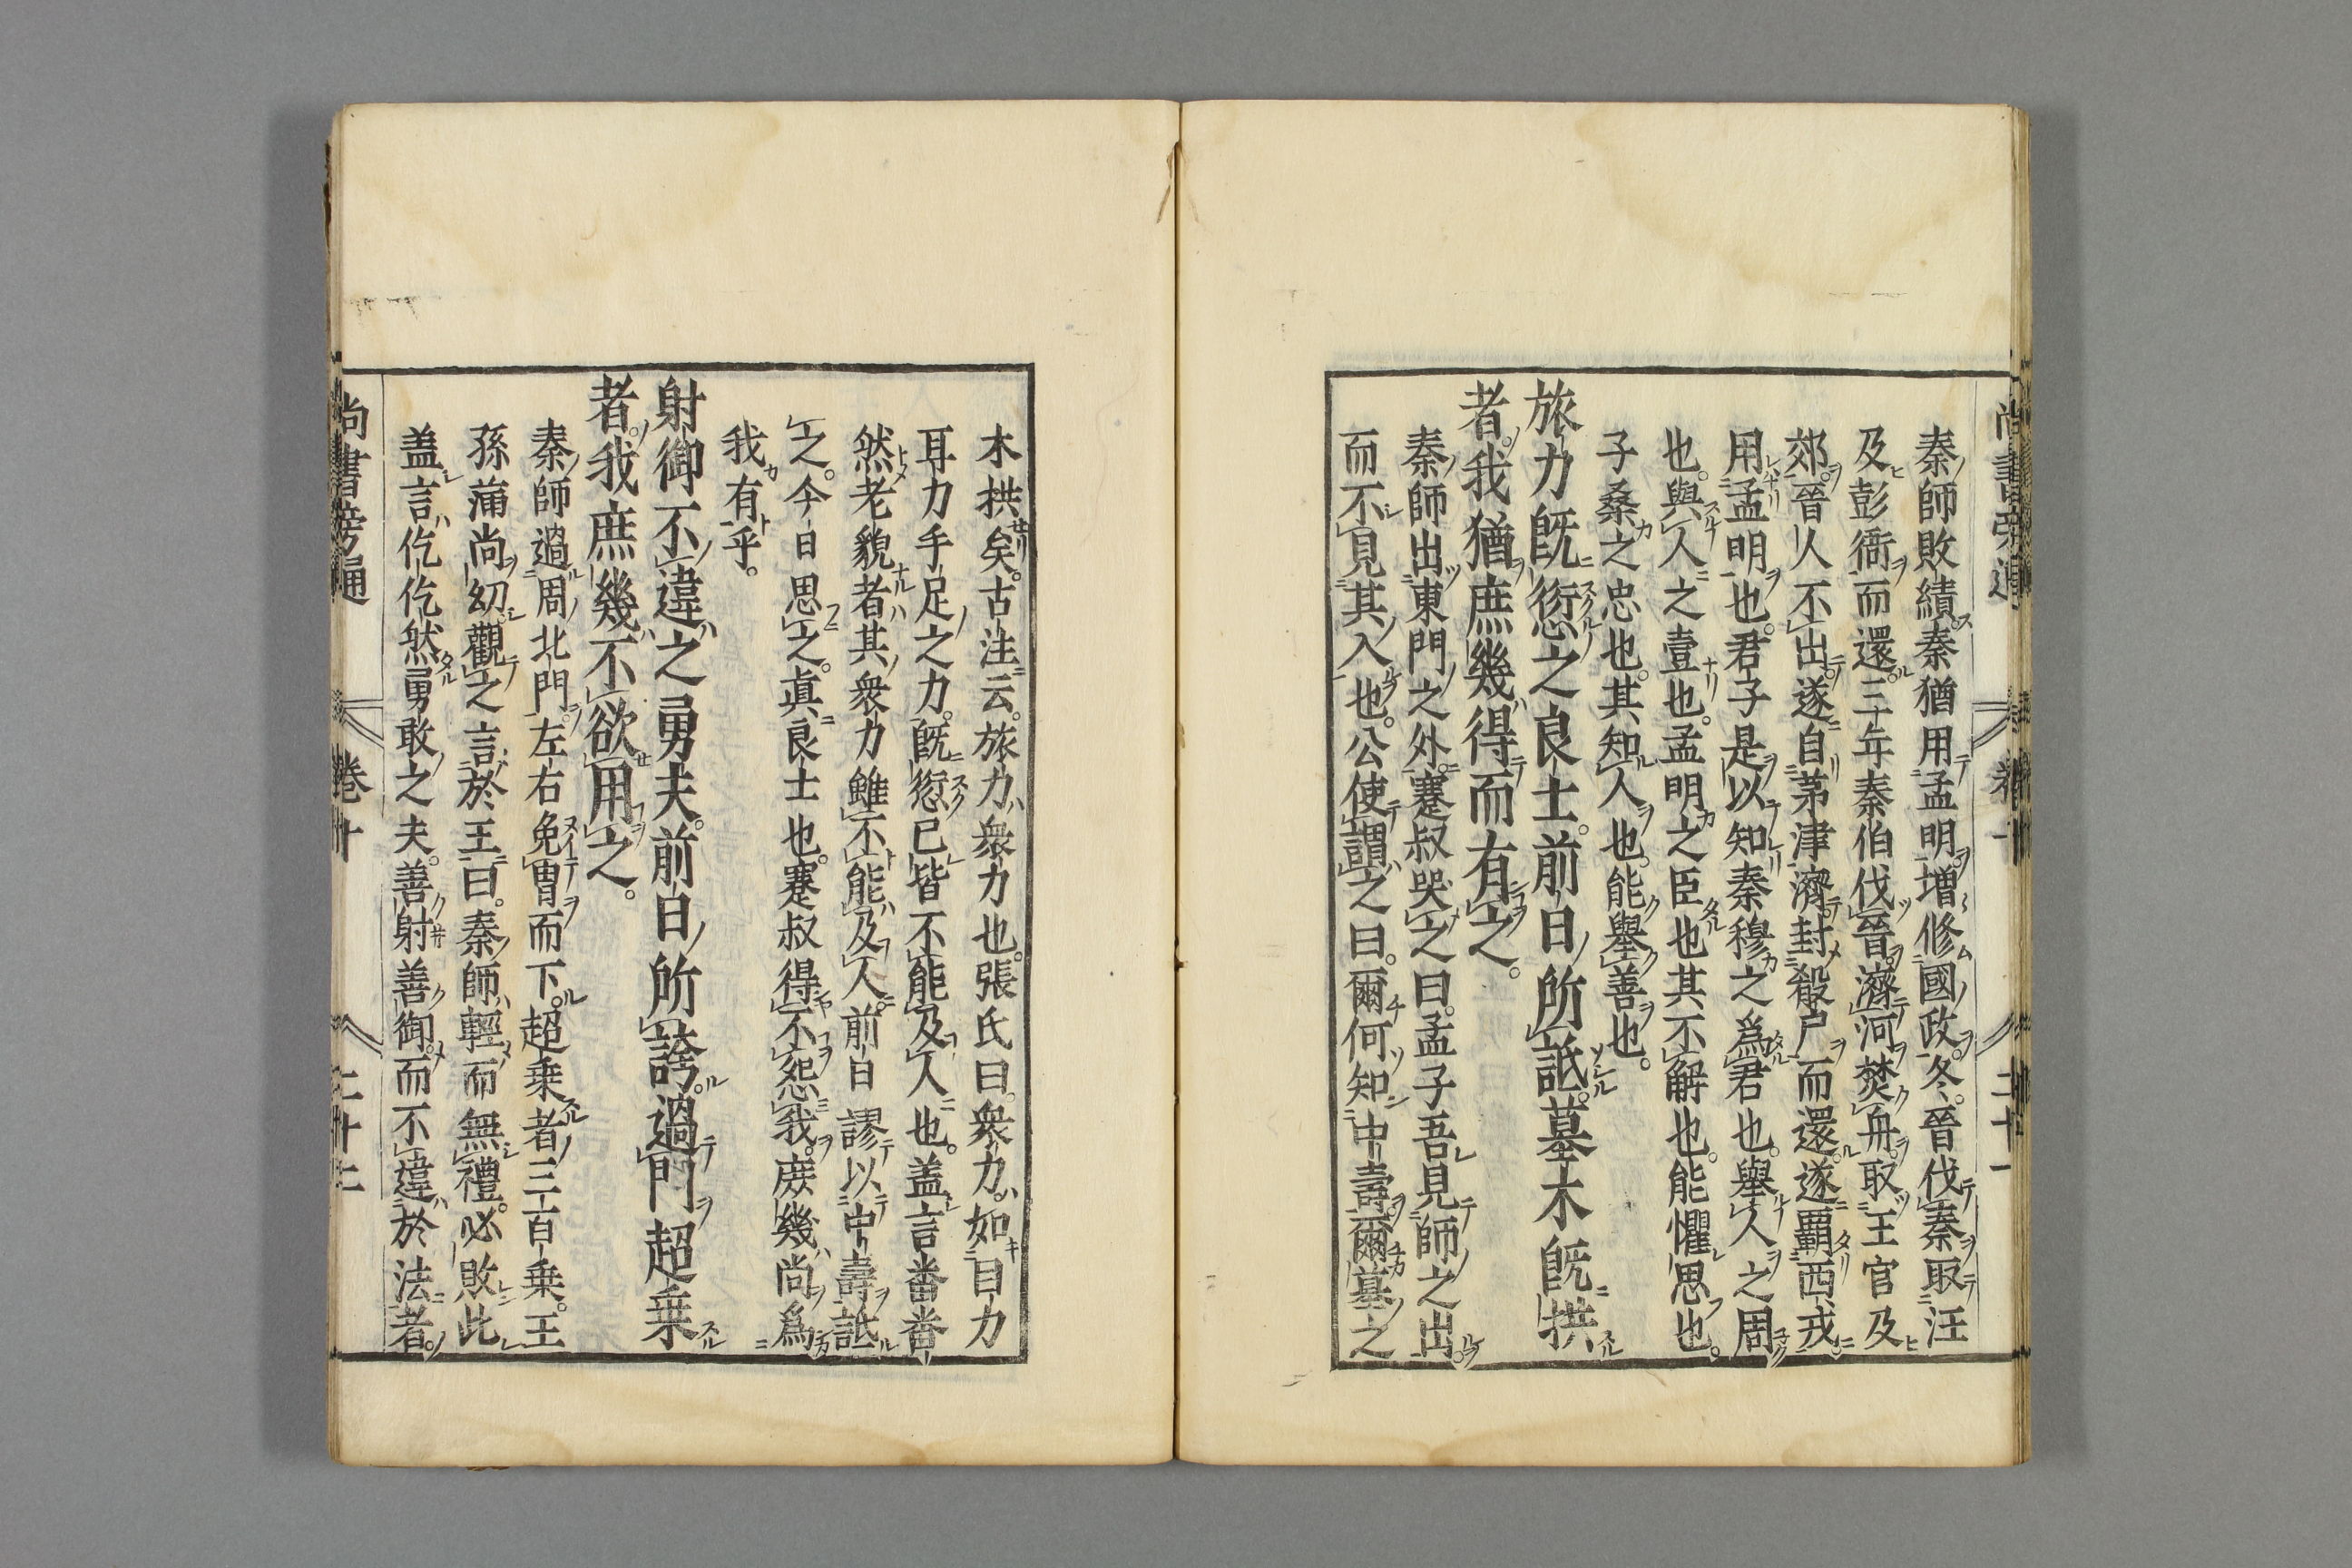 秦師敗績。秦猶用孟明。増修國政。冬。晉伐秦取汪
及彭衙而還。三年秦伯伐晉。濟河焚舟。取王官及
郊。晉人不出。遂自茅津濟。封殽尸而還。遂覇西戎。
用孟明也。君子是以知秦穆之爲君也。舉人之周
也。與人之壹也。孟明之臣也其不解也。能懼思也。
子桑之忠也。其知人也。能舉善也。
旅力既愆之良士。前日所詆。墓木既拱
者。我猶庶幾得而有之。
秦師出東門之外。蹇叔哭之曰。孟子吾見師之出。
而不見其入也。公使謂之曰。爾何知中壽。爾墓之
木拱矣。古注云。旅力衆力也。張氏曰。衆力。如目力
耳力手足之力。既愆已皆不能及人也。盖言畨畨
然老貌者其衆力雖不能及人。前日謬以中壽詆
之。今日思之。眞良士也。蹇叔得不怨我。庶幾尚爲
我有乎。
射御不違之勇夫。前日所誇。過門超乗
者。我庶幾不欲用之。
秦師過周北門。左右免冑而下。超乗者三百乗。王
孫蒲尚幼。觀之言於王曰。秦師輕而無禮。必敗此
盖言仡仡然勇敢之夫。善射善御。而不違於法者。
尚書旁通 卷十 二十二